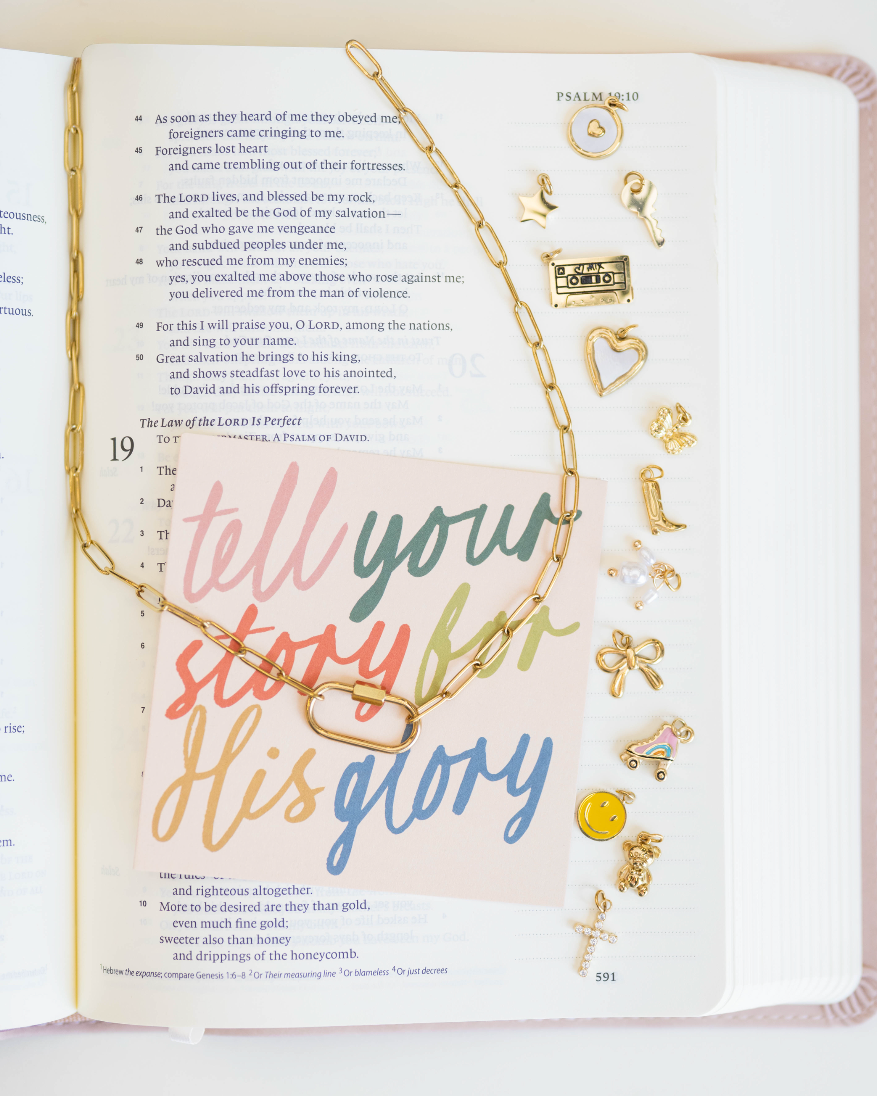 teousness,
ht.
eless;
rtuous.
rise;
me.
em.
PSALM 19:10
44 As soon as they heard of me they obeyed me;
foreigners came cringing to me.
45 Foreigners lost heart
and came trembling out of their fortresses.
46 The LORD lives, and blessed be my rock,
and exalted be the God of my salvation—
47 the God who gave me vengeance
and subdued peoples under me,
48 who rescued me from my enemies;
yes, you exalted me above those who rose against me;
you delivered me from the man of violence.
49 For this I will praise you, O LORD, among the nations,
and sing to your name.
50 Great salvation he brings to his king,
and shows steadfast love to his anointed,
to David and his offspring forever.
The Law of the LORD Is Perfect
19 To T MASTER. A PSALM OF DAVID.
1 The
2 Da
3 Th
4 T
5
6
7
tell your
story for
His glory
the rules
and righteous altogether.
10 More to be desired are they than gold,
even much fine gold;
sweeter also than honey
and drippings of the honeycomb.
1 Hebrew the expanse; compare Genesis 1:6–8 2 Or Their measuring line 3 Or blameless 4 Or just decrees
591